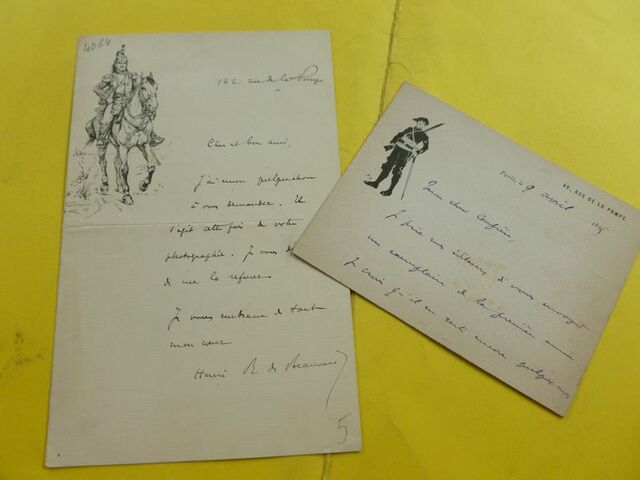 4064
142 rue de la Pompe
Cher et bon ami,
J'ai encore quelque chose
à vous demander. Il
s'agit cette fois de votre
photographie. Je vous
de me la refuser
Je vous embrasse de tout
mon coeur
Henri R. de Beauvais
5
Paris, le 9 avril 189
69, RUE DE LA POMPE
Mon cher Confrère,
Je prie mes éditeurs de vous envoyer
un exemplaire de la première année.
Je crois qu'il en reste encore quelques-uns